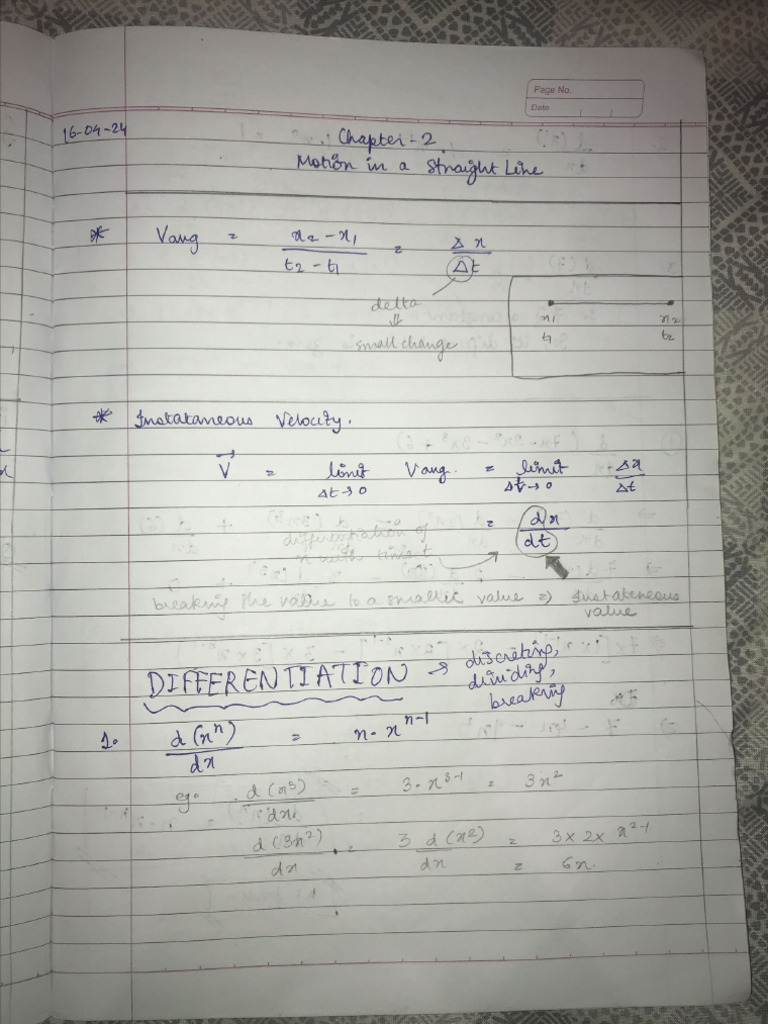 Page No.
Date
16-04-24
Chapter-2
Motion in a Straight Line
* Vavg = x2 - x1 / t2 - t1 = Δx / Δt
delta
⇓
small change
x1 x2
t1 t2
* Instataneous Velocity.
V⃗ = limit Δt→0 Vavg. = limit Δt→0 Δx / Δt
= dx / dt
differentiation of
x with time t
breaking the value to a smaller value ⇒ Instateneous
value
DIFFERENTIATION → discreting,
dividing,
breaking
1. d(xⁿ) / dx = n·xⁿ⁻¹
eg. d(x³) / dx = 3·x³⁻¹ = 3x²
d(3x²) / dx = 3 d(x²) / dx = 3×2× x²⁻¹
= 6x.